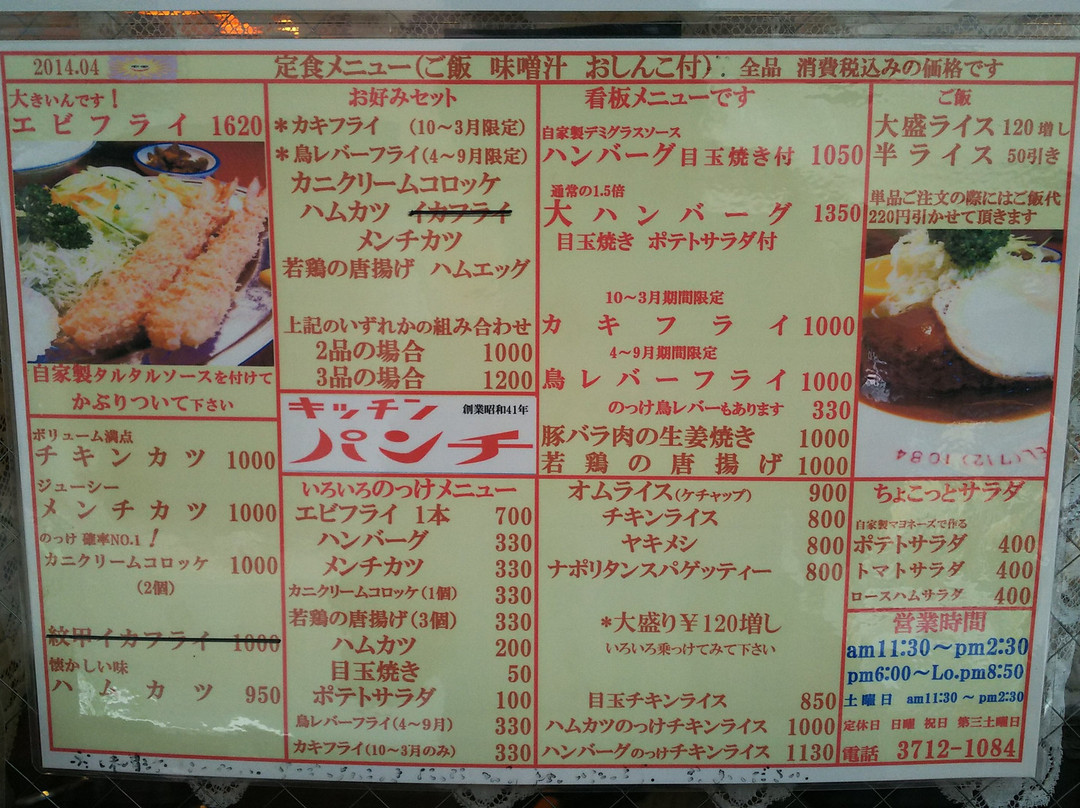 2014.04
定食メニュー(ご飯 味噌汁 おしんこ付) 全品 消費税込みの価格です
大きいんです!
エビフライ 1620
自家製タルタルソースを付けて
かぶりついて下さい
ボリューム満点
チキンカツ 1000
ジューシー
メンチカツ 1000
のっけ 確率NO.1!
カニクリームコロッケ 1000
(2個)
紋甲イカフライ 1000
懐かしい味
ハムカツ 950
お好みセット
*カキフライ (10~3月限定)
*鳥レバーフライ(4~9月限定)
カニクリームコロッケ
ハムカツ イカフライ
メンチカツ
若鶏の唐揚げ ハムエッグ
上記のいずれかの組み合わせ
2品の場合 1000
3品の場合 1200
キッチン 創業昭和41年
パンチ
いろいろのっけメニュー
エビフライ 1本 700
ハンバーグ 330
メンチカツ 330
カニクリームコロッケ(1個) 330
若鶏の唐揚げ(3個) 330
ハムカツ 200
目玉焼き 50
ポテトサラダ 100
鳥レバーフライ(4~9月) 330
カキフライ(10~3月のみ) 330
看板メニューです
自家製デミグラスソース
ハンバーグ目玉焼き付 1050
通常の1.5倍
大ハンバーグ 1350
目玉焼き ポテトサラダ付
10~3月期間限定
カキフライ 1000
4~9月期間限定
鳥レバーフライ 1000
のっけ鳥レバーもあります 330
豚バラ肉の生姜焼き 1000
若鶏の唐揚げ 1000
オムライス(ケチャップ) 900
チキンライス 800
ヤキメシ 800
ナポリタンスパゲッティー 800
*大盛り¥120増し
いろいろ乗っけてみて下さい
目玉チキンライス 850
ハムカツのっけチキンライス 1000
ハンバーグのっけチキンライス 1130
ご飯
大盛ライス 120増し
半ライス 50引き
単品ご注文の際にはご飯代
220円引かせて頂きます
ちょこっとサラダ
自家製マヨネーズで作る
ポテトサラダ 400
トマトサラダ 400
ロースハムサラダ 400
営業時間
am11:30~pm2:30
pm6:00~Lo.pm8:50
土曜日 am11:30~pm2:30
定休日 日曜 祝日 第三土曜日
電話 3712-1084